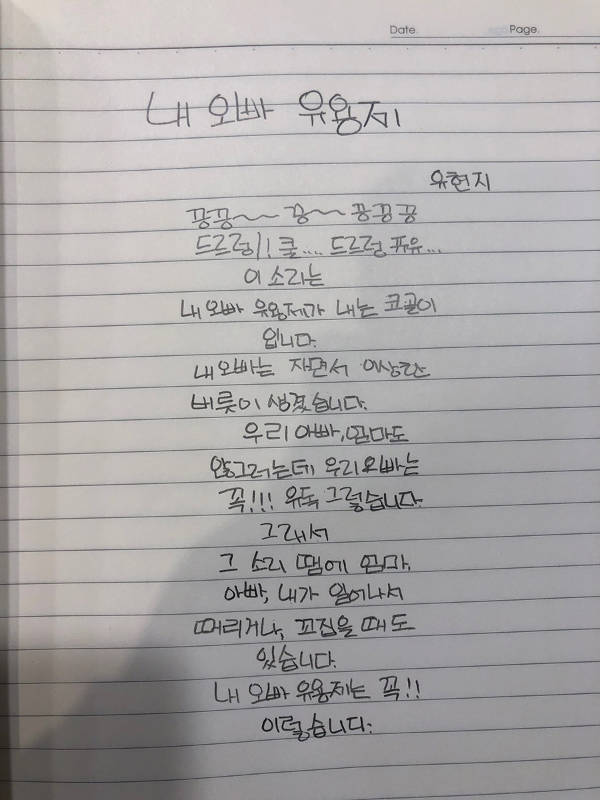 Date. Page.
내 오빠 유용제
유현지
끙끙~~ 끙~~ 끙끙끙
드르렁!! 쿨.... 드르렁 퓨유...
이 소리는
내 오빠 유용제가 내는 코골이
입니다.
내 오빠는 자면서 이상한
버릇이 생겼습니다.
우리 아빠, 엄마도
않그러는데 우리오빠는
꼭!!! 유독 그렇습니다.
그래서
그 소리 땜에 엄마,
아빠, 내가 일어나서
때리거나, 꼬집을 때도
있습니다.
내 오빠 유용제는 꼭!!
이렇습니다.